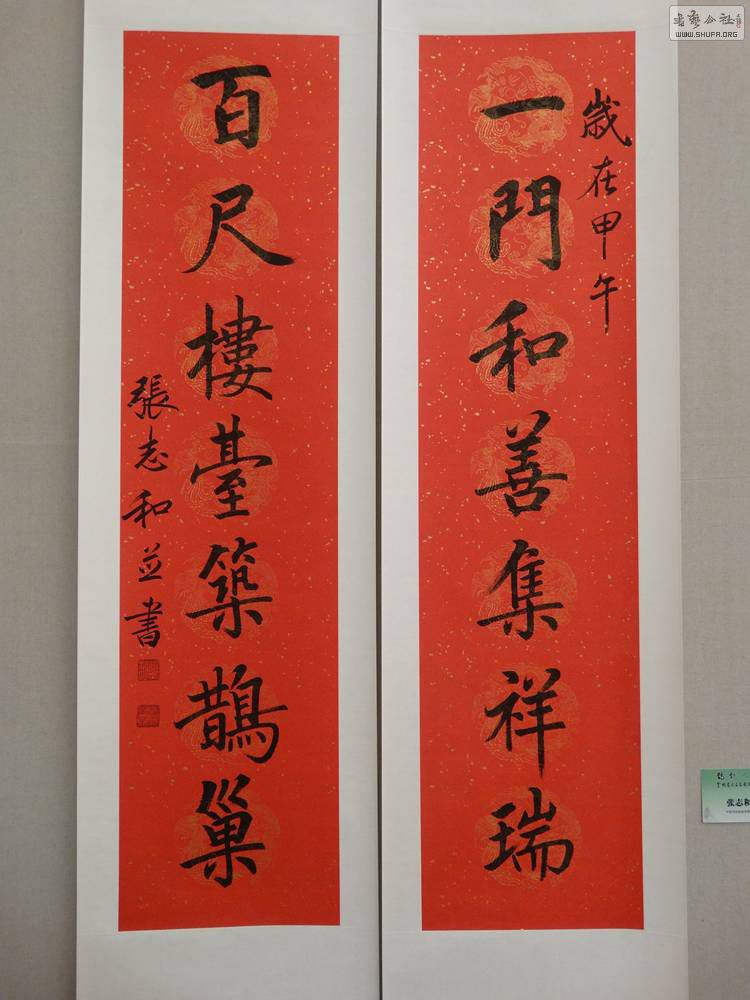 歲在甲午
一門和善集祥瑞
百尺樓臺築鵲巢
張志和並書
书艺公社
WWW.SHUFA.ORG
张志和